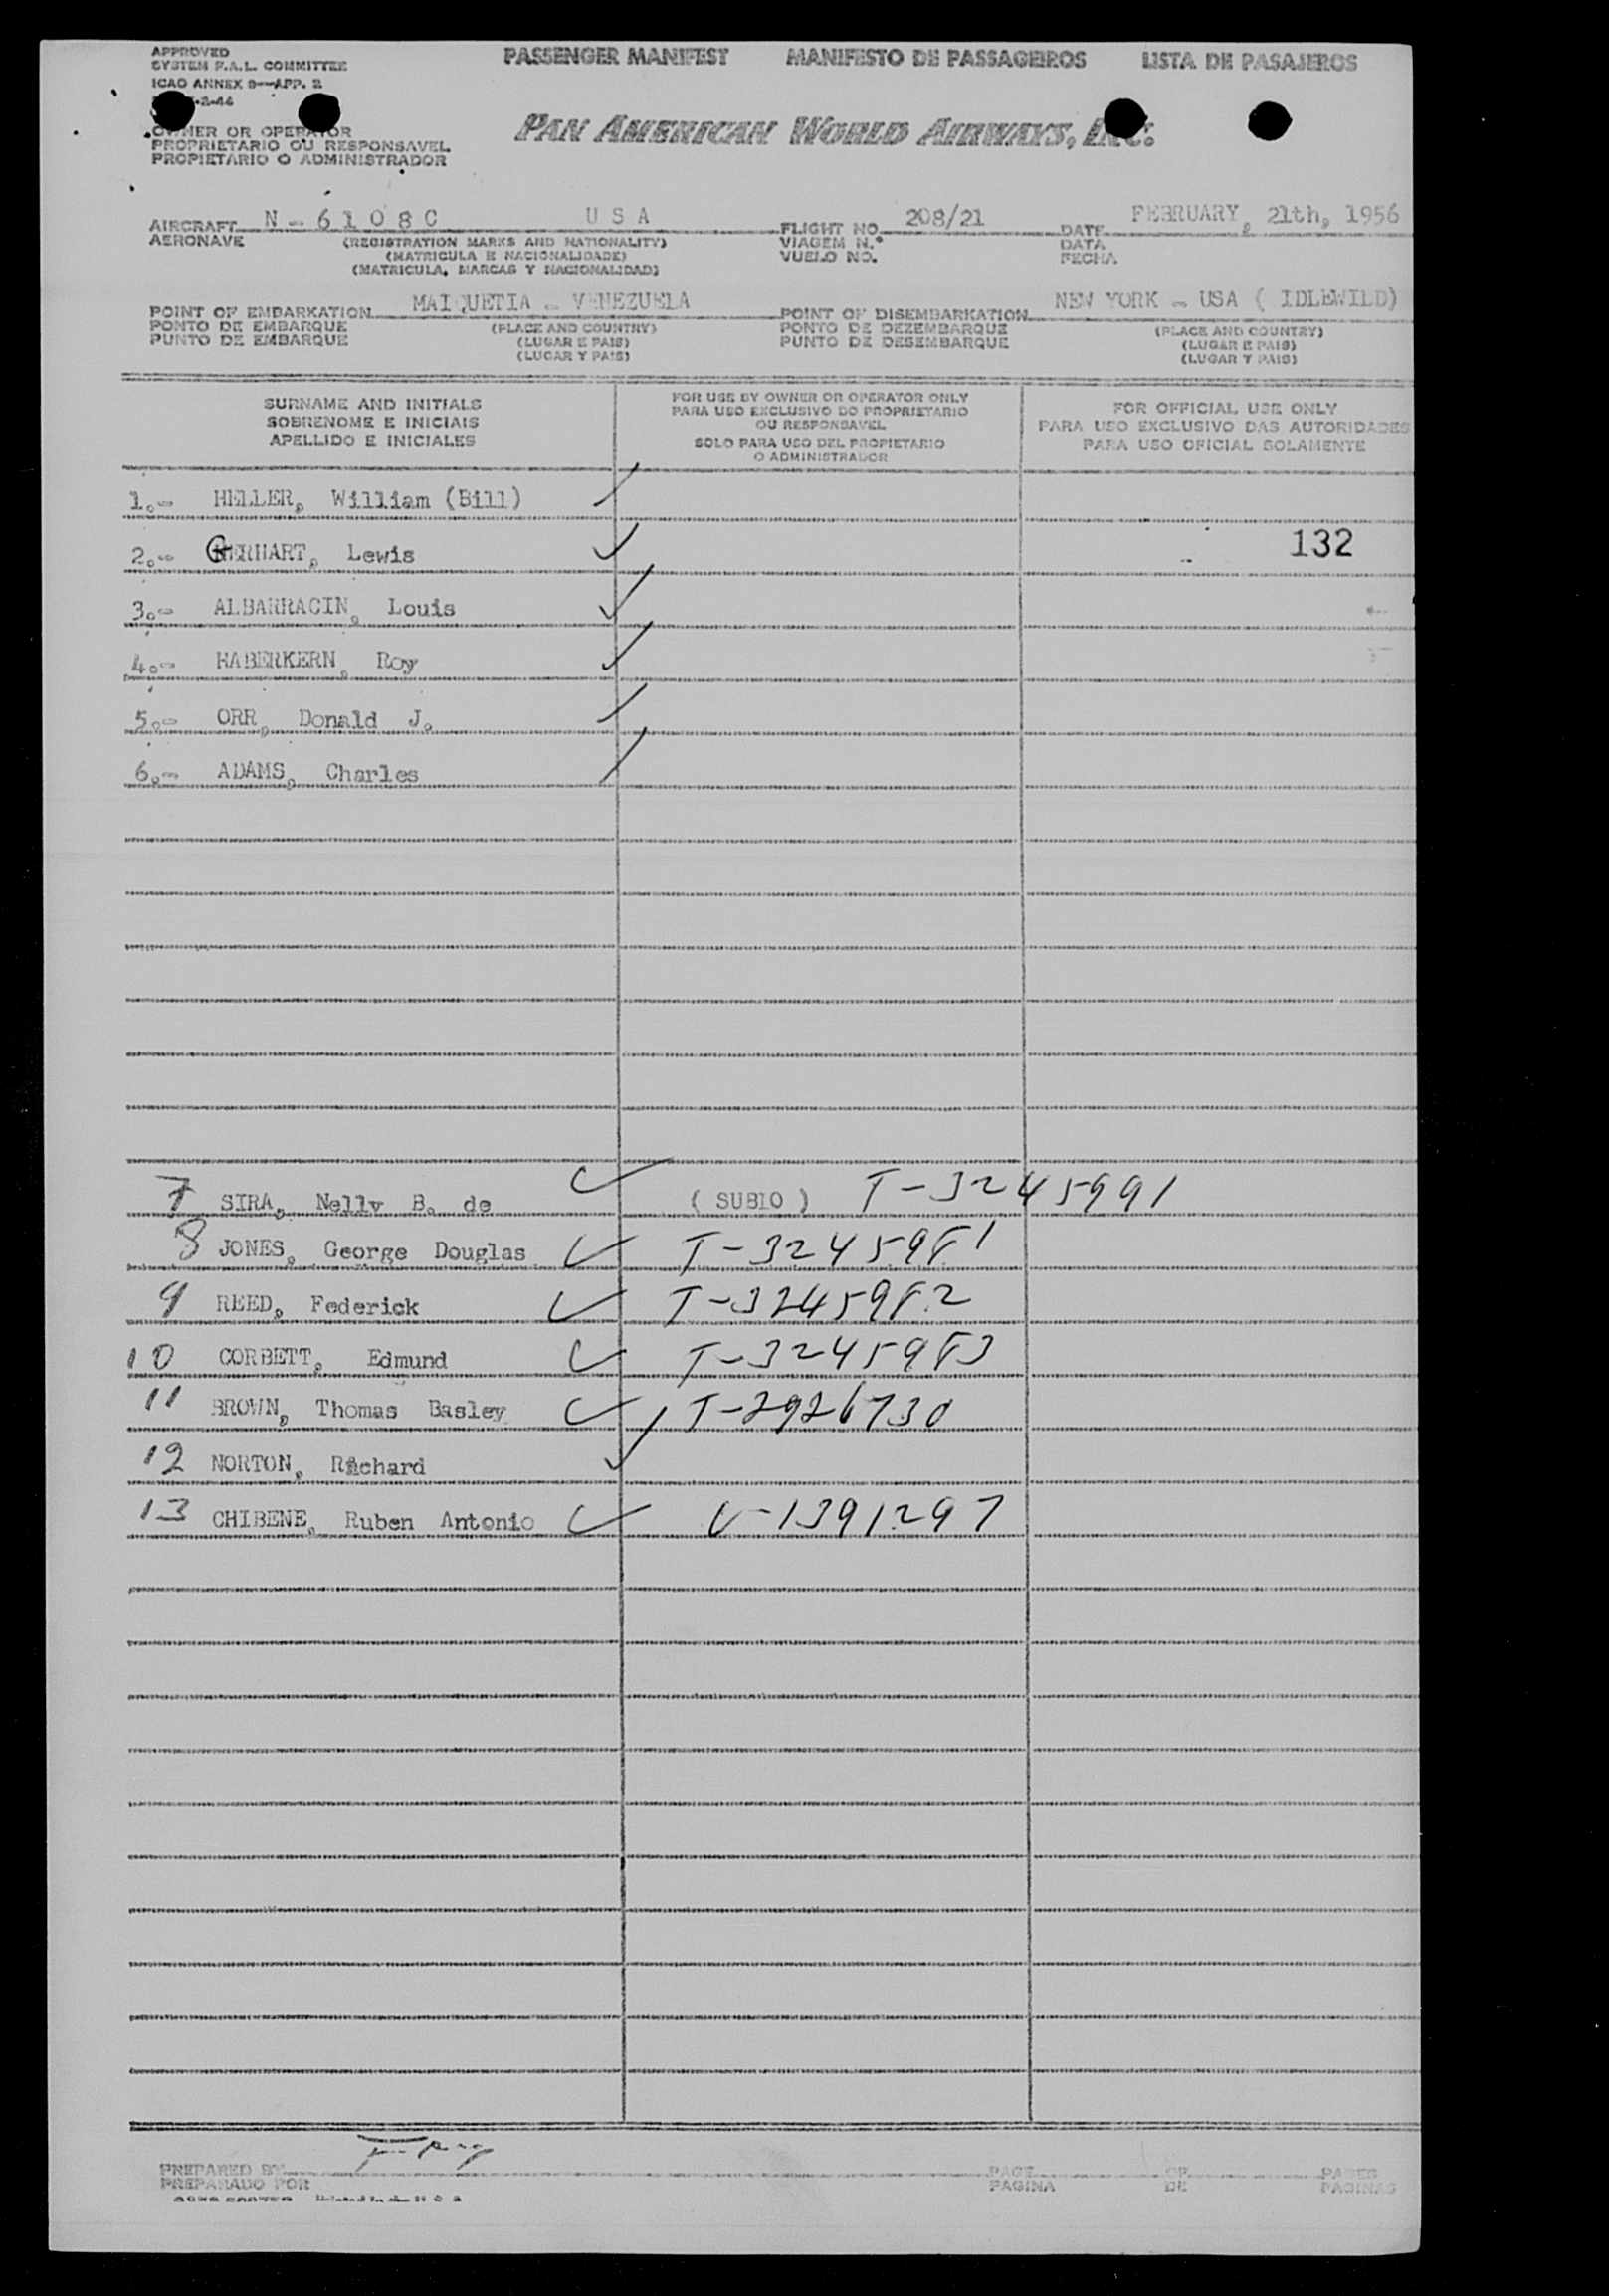 APPROVED
SYSTEM F.A.L. COMMITTEE
ICAO ANNEX 9—APP. 2
-2-44
OWNER OR OPERATOR
PROPRIETARIO OU RESPONSAVEL
PROPIETARIO O ADMINISTRADOR
PASSENGER MANIFEST MANIFESTO DE PASSAGEIROS LISTA DE PASAJEROS
PAN AMERICAN WORLD AIRWAYS, INC.
AIRCRAFT N-6108C USA
AERONAVE
(REGISTRATION MARKS AND NATIONALITY)
(MATRICULA E NACIONALIDADE)
(MATRICULA, MARCAS Y NACIONALIDAD)
FLIGHT NO. 208/21
VIAGEM N.º
VUELO NO.
DATE FEBRUARY, 21th, 1956
DATA
FECHA
POINT OF EMBARKATION MAIQUETIA - VENEZUELA
PONTO DE EMBARQUE
PUNTO DE EMBARQUE
(PLACE AND COUNTRY)
(LUGAR E PAIS)
(LUGAR Y PAIS)
POINT OF DISEMBARKATION NEW YORK - USA ( IDLEWILD)
PONTO DE DEZEMBARQUE
PUNTO DE DESEMBARQUE
(PLACE AND COUNTRY)
(LUGAR E PAIS)
(LUGAR Y PAIS)
SURNAME AND INITIALS
SOBRENOME E INICIAIS
APELLIDO E INICIALES
FOR USE BY OWNER OR OPERATOR ONLY
PARA USO EXCLUSIVO DO PROPRIETARIO
OU RESPONSAVEL
SOLO PARA USO DEL PROPIETARIO
O ADMINISTRADOR
FOR OFFICIAL USE ONLY
PARA USO EXCLUSIVO DAS AUTORIDADES
PARA USO OFICIAL SOLAMENTE
1.- HELLER, William (Bill)
2.- GERHART, Lewis 132
3.- ALBARRACIN, Louis
4.- HABERKERN, Roy
5.- ORR, Donald J.
6.- ADAMS, Charles
7 SIRA, Nelly B. de ( SUBIO ) T-3245991
8 JONES, George Douglas T-3245981
9 REED, Federick T-3245982
10 CORBETT, Edmund T-3245983
11 BROWN, Thomas Basley T-2926730
12 NORTON, Richard
13 CHIBENE, Ruben Antonio V-1391297
PREPARED BY
PREPARADO POR
PAGE OF PAGES
PAGINA DE PAGINAS